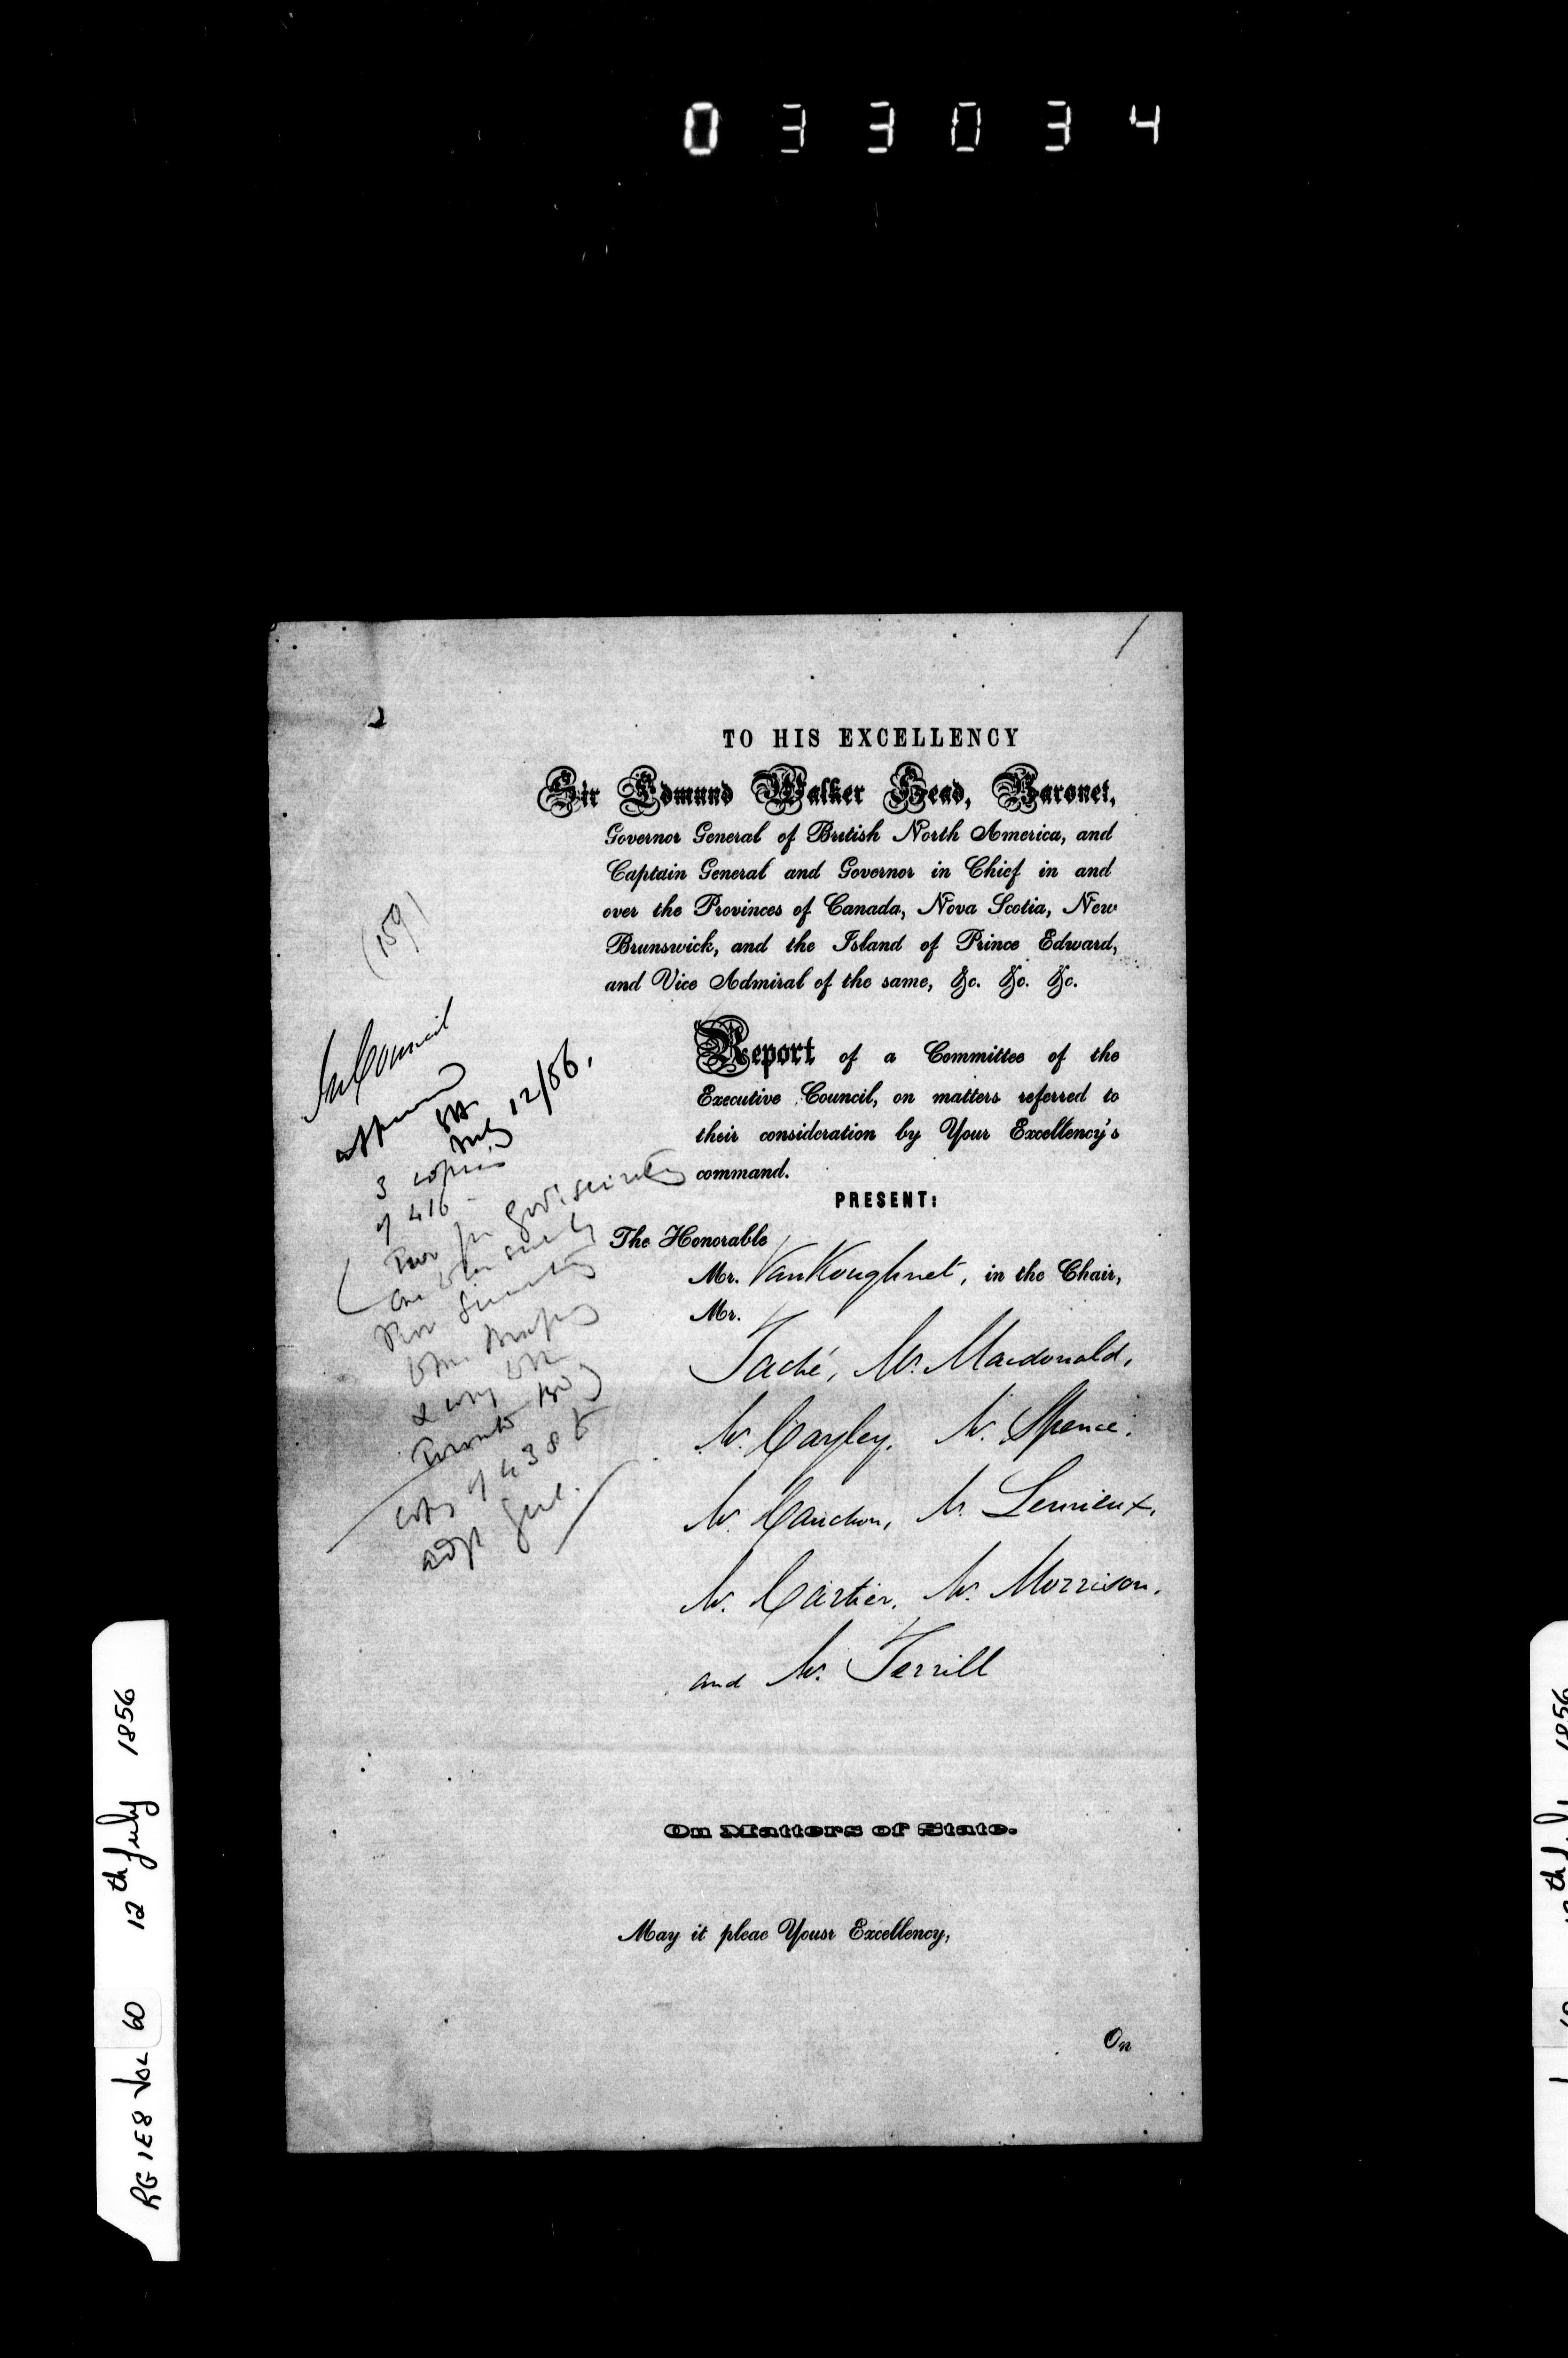 033034
TO HIS EXCELLENCY
Sir Edmund Walker Head, Baronet,
Governor General of British North America, and
Captain General and Governor in Chief in and
over the Provinces of Canada, Nova Scotia, New
Brunswick, and the Island of Prince Edward,
and Vice Admiral of the same, &c. &c. &c.
Report of a Committee of the
Executive Council, on matters referred to
their consideration by Your Excellency's
command.
PRESENT:
The Honorable
Mr. VanKoughnet, in the Chair,
Mr.
Taché, Mr. Macdonald,
Mr. Cayley, Mr. Spence,
Mr. Cauchon, Mr. Lemieux,
Mr. Cartier, Mr. Morrison,
and Mr. Terrill
On Matters of State.
May it pleae Yousr Excellency,
On
(159)
In Council
Approved
July 12/56.
3 copies
of 416
Two for Govr Secretary
Toronto
copy of 438 to
Adjt Genl.
RG 1E8 Vol 60 12th July 1856